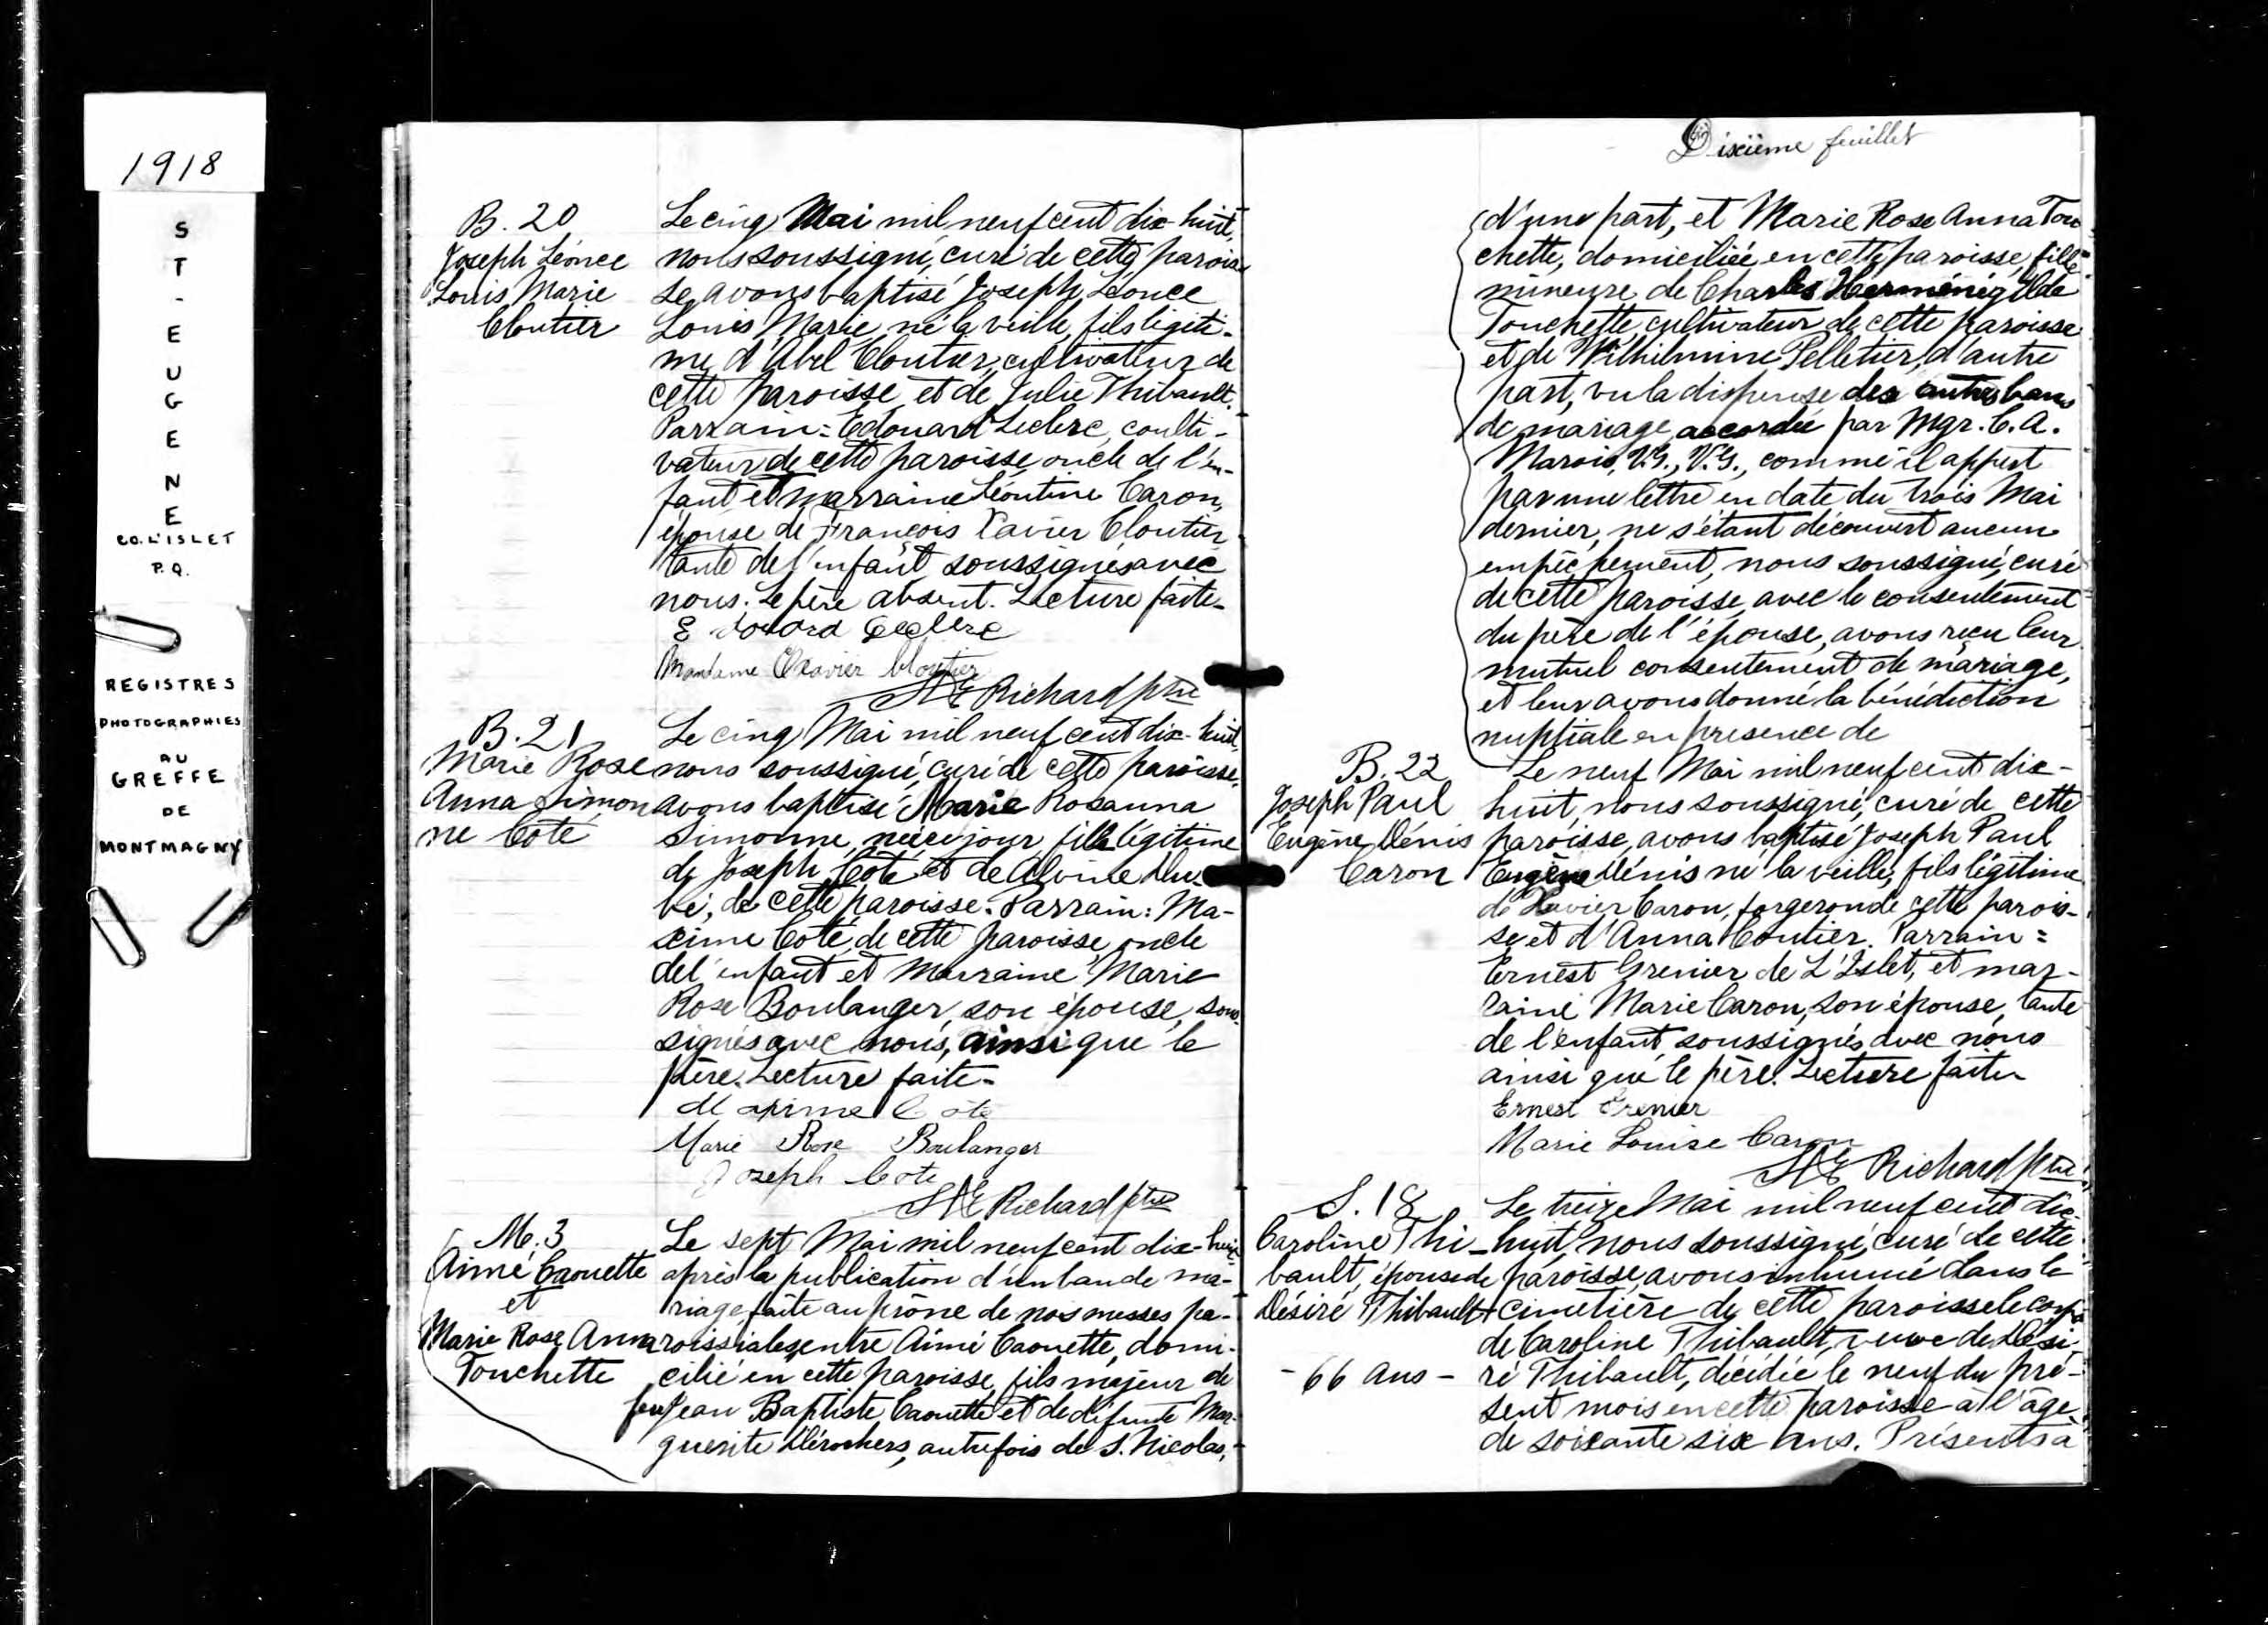 1918
ST-EUGENE
CO. L'ISLET
P.Q.
REGISTRES
PHOTOGRAPHIES
AU
GREFFE
DE
MONTMAGNY
B. 20
Joseph Léonce
Louis Marie
Cloutier
Le cinq Mai mil neuf cent dix-huit,
nous soussigné, curé de cette parois
se avons baptisé Joseph Léonce
Louis Marie, né la veille, fils légiti-
me d'Abel Cloutier, cultivateur de
cette paroisse et de Julie Thibault.
Parrain: Edouard Leclerc, coulti-
vateur de cette paroisse oncle de l'en-
fant et marraine Léontine Caron,
épouse de François Xavier Cloutier
tante de l'enfant soussignés avec
nous. Le père absent. Lecture faite.
Edouard Leclerc
Madame Xavier Cloutier
Richard ptre
B. 21
Marie Rose
Anna Simon
ne Coté
Le cinq Mai mil neuf cent dix-huit,
nous soussigné, curé de cette paroisse,
avons baptisé Marie Rosanna
Simonne, née ce jour, fille légitime
de Joseph Coté et de Alvine Du-
bé, de cette paroisse. Parrain: Ma-
xime Coté, de cette paroisse, oncle
de l'enfant et Marraine Marie
Rose Boulanger, son épouse, sous
signés avec nous, ainsi que le
père. Lecture faite.
Maxime Cote
Marie Rose Boulanger
Joseph Cote
Richard ptre
M. 3
Aimé Caouette
et
Marie Rose Anna
Touchette
Le sept Mai mil neuf cent dix-huit
après la publication d'un ban de ma-
riage faite au prône de nos messes pa-
roissiales, entre Aimé Caouette, domi-
cilié en cette paroisse, fils majeur de
feu Jean Baptiste Caouette et de défunte Mar-
guerite Dérochers, autrefois de S. Nicolas,
Dixième feuillet
d'une part, et Marie Rose Anna Tou
chette, domiciliée en cette paroisse, fille
mineure de Charles Herménégilde
Touchette, cultivateur de cette paroisse
et de Wilhilmine Pelletier, d'autre
part, vu la dispense des autres bans
de mariage accordée par Mgr. C. A.
Marois, V.G., comme il appert
par une lettre en date du trois Mai
dernier, ne s'étant découvert aucun
empêchement, nous soussigné, curé
de cette paroisse, avec le consentement
du père de l'épouse, avons reçu leur
mutuel consentement de mariage,
et leur avons donné la bénédiction
nuptiale en presence de
B. 22
Joseph Paul
Eugène Dénis
Caron
Le neuf Mai mil neuf cent dix-
huit, nous soussigné, curé de cette
paroisse, avons baptisé Joseph Paul
Eugène Dénis né la veille, fils légitime
de Xavier Caron, forgeron de cette parois-
se et d'Anna Coutier. Parrain =
Ernest Grenier de L'Islet, et mar-
raine Marie Caron, son épouse, tante
de l'enfant, soussignés avec nous
ainsi que le père. Lecture faite.
Ernest Grenier
Marie Louise Caron
Richard ptre
S. 18
Caroline Thi-
bault, épouse de
Désiré Thibault
- 66 ans -
Le treize Mai mil neuf cent dix-
huit, nous soussigné, curé de cette
paroisse, avons inhumé dans le
cimetière de cette paroisse le corps
de Caroline Thibault, veuve de Dési-
ré Thibault, décédée le neuf du pré-
sent mois en cette paroisse à l'âge
de soixante six ans. Présents à